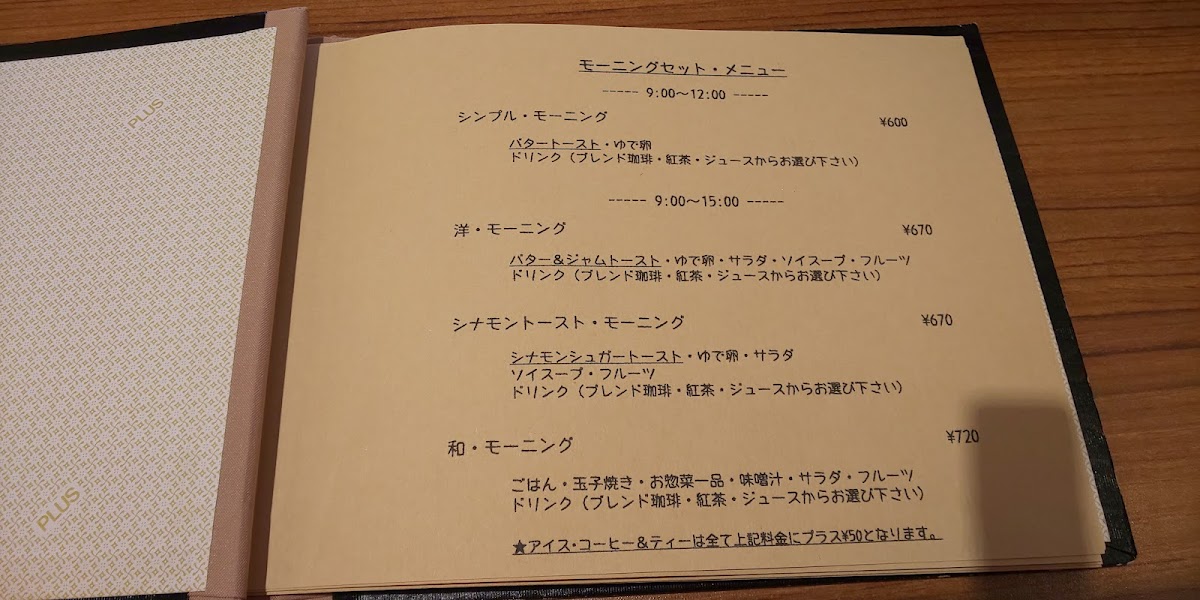 PLUS
PLUS
モーニングセット・メニュー
----- 9:00～12:00 -----
シンプル・モーニング ¥600
バタートースト・ゆで卵
ドリンク（ブレンド珈琲・紅茶・ジュースからお選び下さい）
----- 9:00～15:00 -----
洋・モーニング ¥670
バター＆ジャムトースト・ゆで卵・サラダ・ソイスープ・フルーツ
ドリンク（ブレンド珈琲・紅茶・ジュースからお選び下さい）
シナモントースト・モーニング ¥670
シナモンシュガートースト・ゆで卵・サラダ
ソイスープ・フルーツ
ドリンク（ブレンド珈琲・紅茶・ジュースからお選び下さい）
和・モーニング ¥720
ごはん・玉子焼き・お惣菜一品・味噌汁・サラダ・フルーツ
ドリンク（ブレンド珈琲・紅茶・ジュースからお選び下さい）
★アイス・コーヒー＆ティーは全て上記料金にプラス¥50となります。